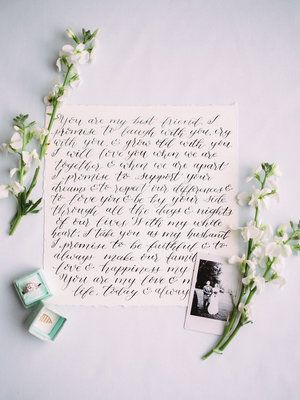 You are my best friend. I
promise to laugh with you, cry
with you, & grow old with you.
I will love you when we are
together & when we are apart.
I promise to support your
dreams & to respect our differences &
to love you & be by your side
through all the days & nights
of our lives. With my whole
heart, I take you as my husband.
I promise to be faithful & to
always make our
love & happiness my
You are my love & my
life, today & always